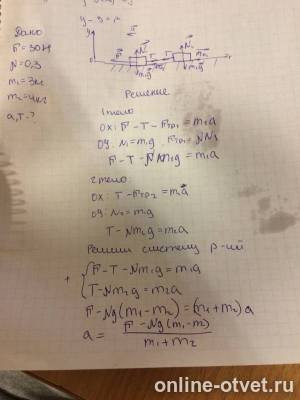 Дано
F = 30Н
N = 0,3
m₁ = 3кг
m₂ = 4кг
a, T - ?
Решение
1 тело
OX: F - T - Fтр₁ = m₁a
OY: N₁ = m₁g Fтр₁ = NN₁
F - T - Nm₁g = m₁a
2 тело
OX: T - Fтр₂ = m₂a
OY: N₂ = m₂g
T - Nm₂g = m₂a
Решим систему р-ий
+ { F - T - Nm₁g = m₁a
T - Nm₂g = m₂a
F - Ng(m₁ - m₂) = (m₁ + m₂)a
a = F - Ng(m₁ - m₂)
m₁ + m₂
online-otvet.ru